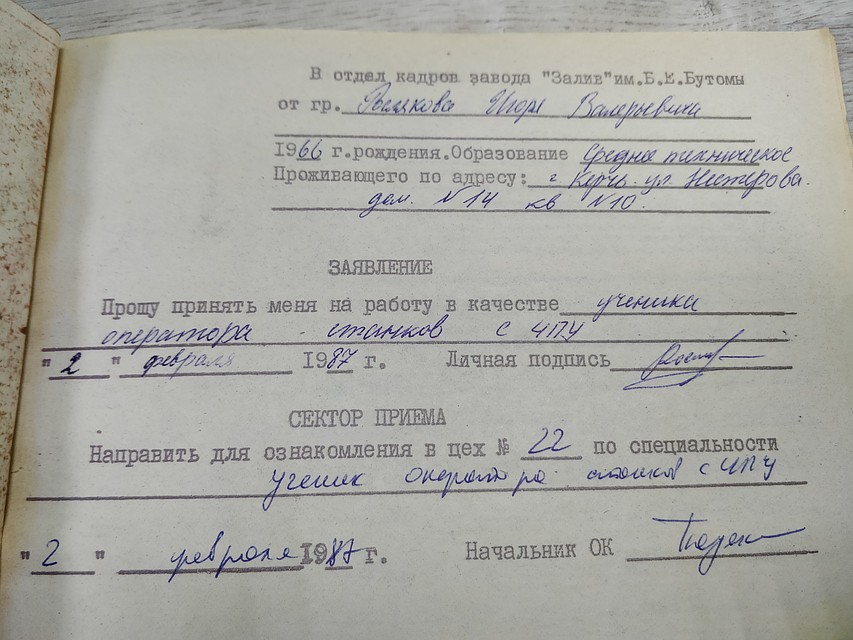 В отдел кадров завода "Залив"им.Б.Е.Бутомы
от гр. Рослякова Игоря Валерьевича
1966 г.рождения.Образование Среднее техническое
Проживающего по адресу: г. Керчь. ул. Нестерова.
дом. N14 кв N10.
ЗАЯВЛЕНИЕ
Прошу принять меня на работу в качестве ученика
оператора станков с ЧПУ
"2" февраля 1987 г. Личная подпись
СЕКТОР ПРИЕМА
Направить для ознакомления в цех № 22 по специальности
ученик оператора станков с ЧПУ
"2" февраля 1987 г. Начальник ОК